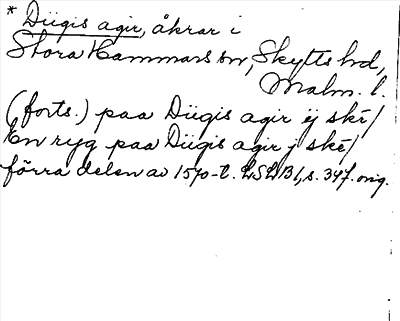 * Dügis agir, åkrar i
Stora Hammars sn, Skytts hd,
Malm. l.
(forts.) paa Dügis agir ij skē/
En ryg paa Dügis agir j skē/
förra delen av 1570-t. LSLB1, s. 347. orig.